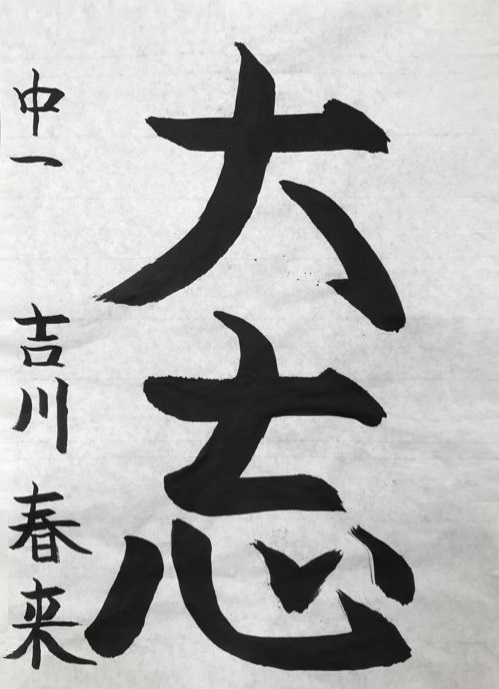 大志
中一 吉川春来